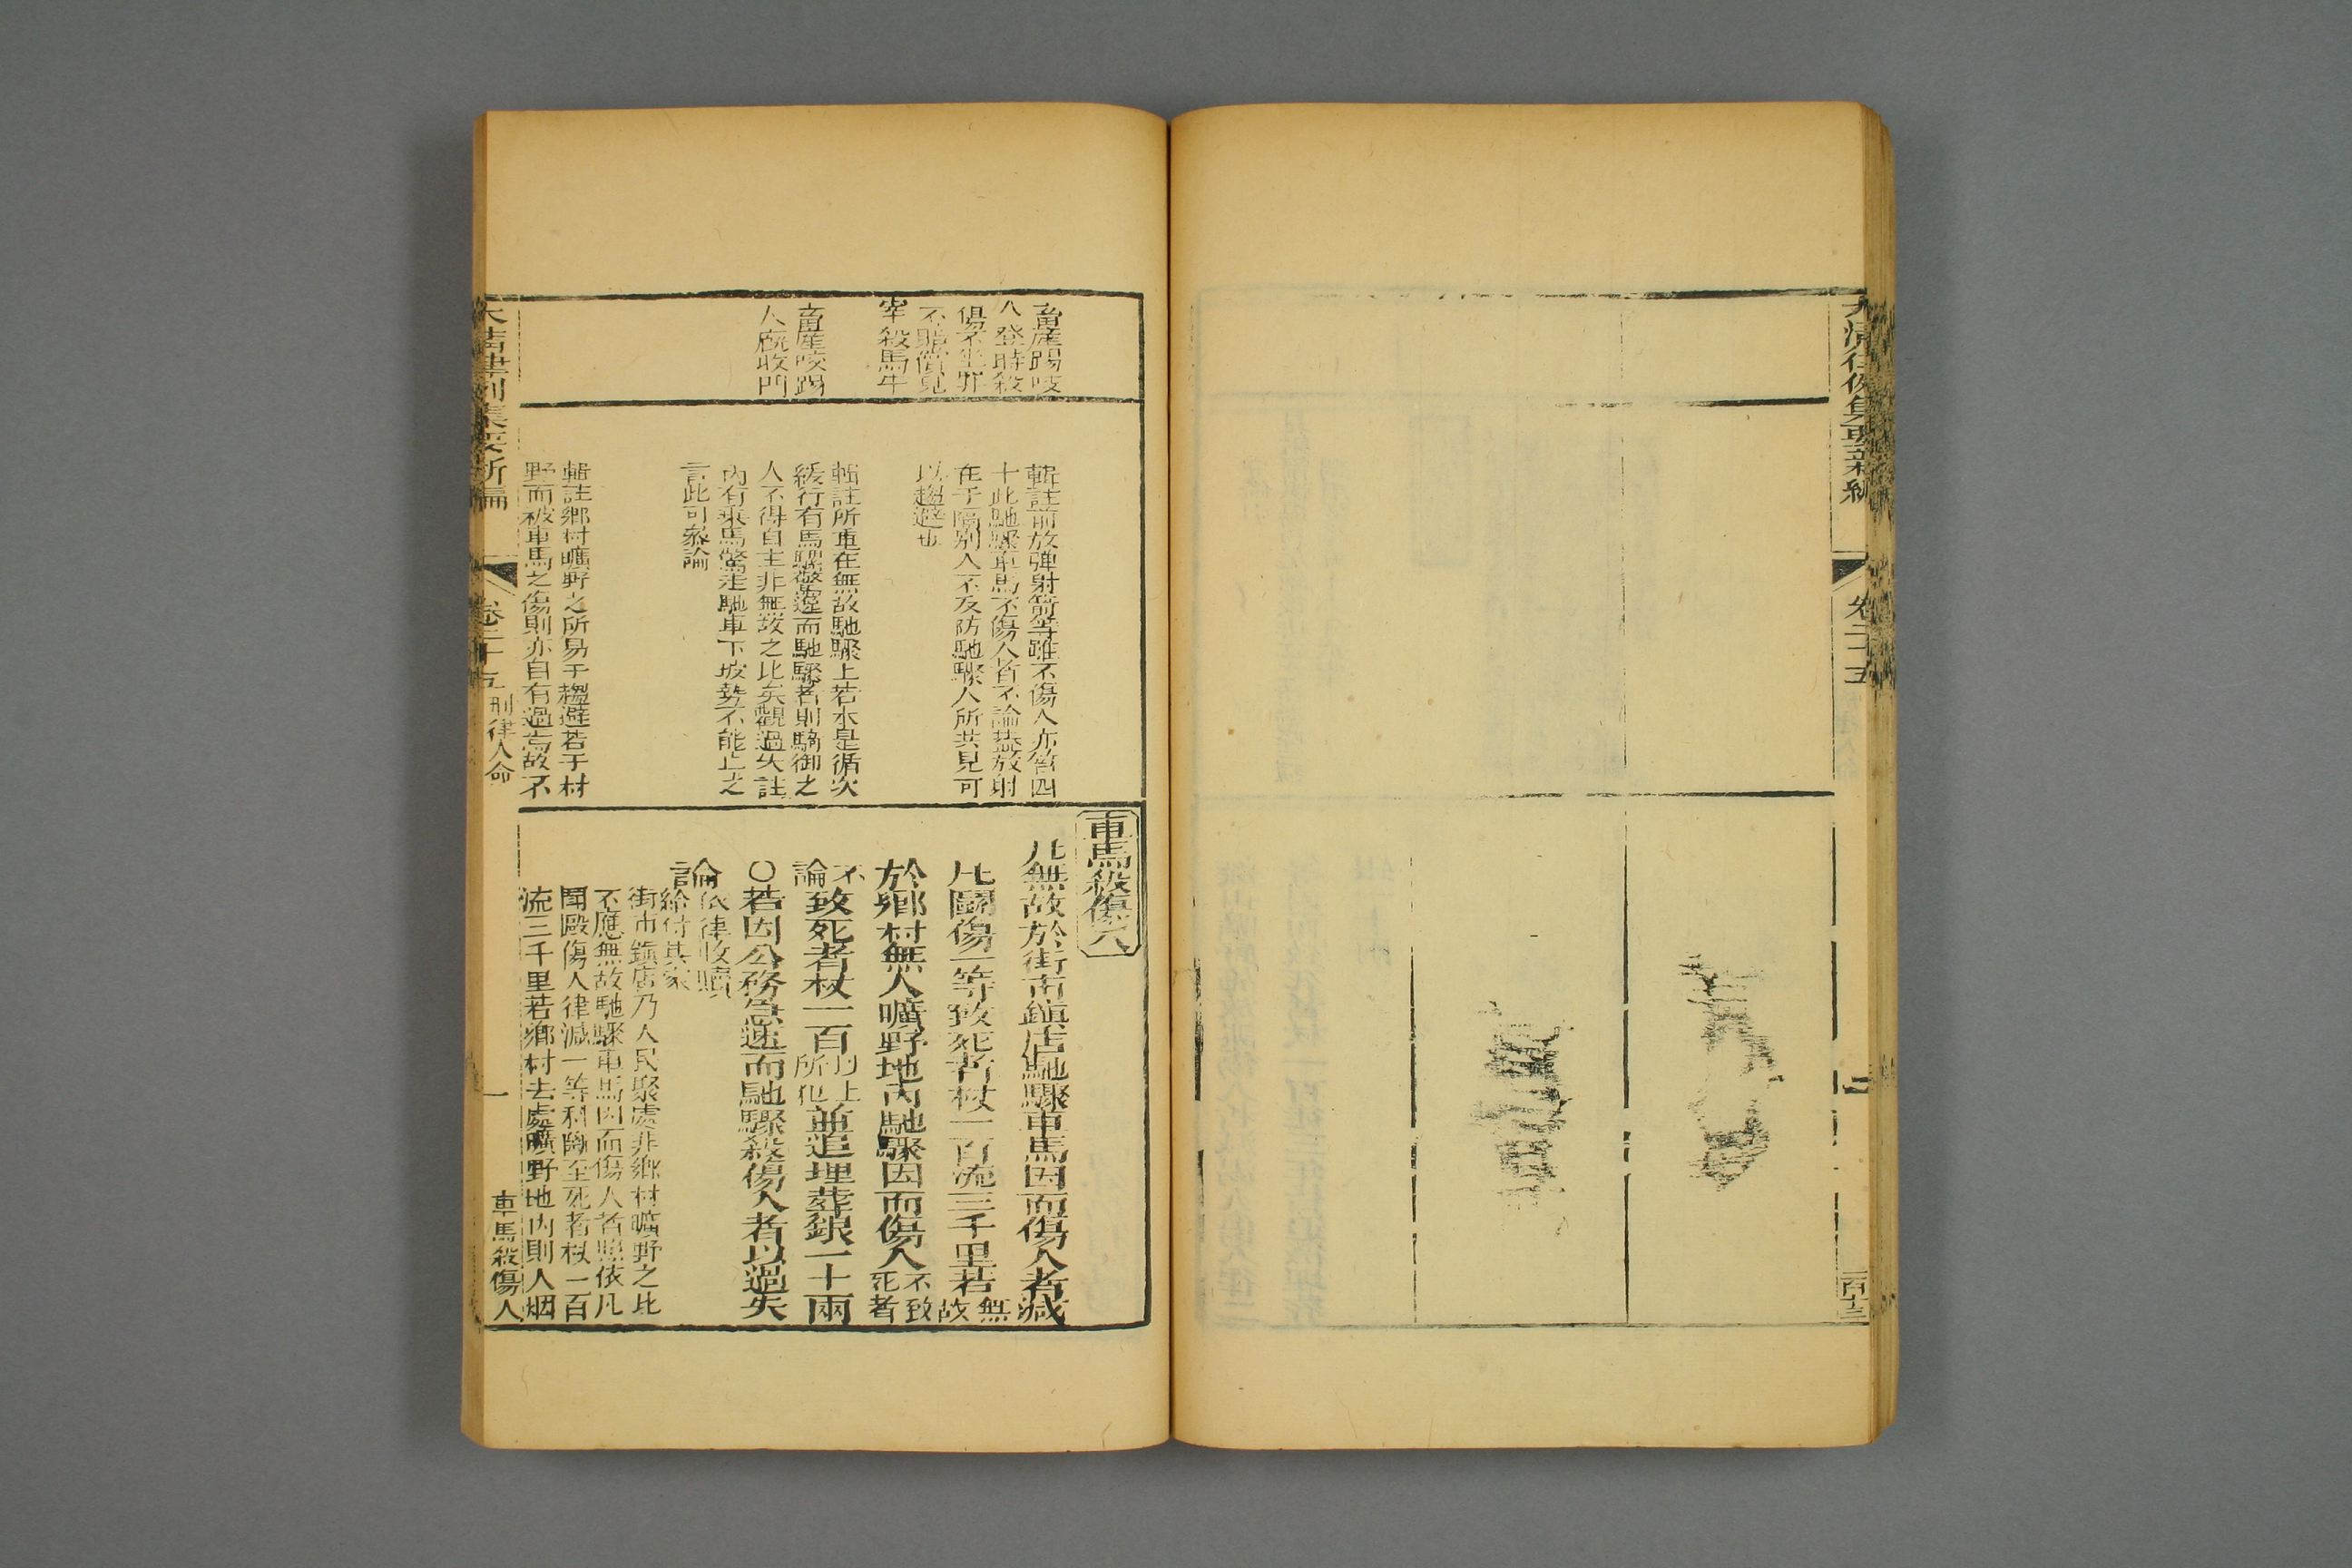 大清律例集要新編
卷二十五
二百十三
畜產踢咬
人登時殺
傷不坐罪
不賠償見
宰殺馬牛
畜產咬踢
人廐收門
輯註前放彈射箭等雖不傷人亦笞四
十此馳驟車馬不傷人者不論蓋放射
在于隔別人不及防馳驟人所共見可
以趨避也
輯註所重在無故馳驟上若本是循次
緩行有馬騾驚逸而馳驟者則騎御之
人不得自主非無故之比矣觀過失註
內有乘馬驚走馳車下坡勢不能止之
言此可叅論
輯註鄉村曠野之所易于趨避若于村
野而被車馬之傷則亦自有過焉故不
車馬殺傷人
凡無故於街市鎮店馳驟車馬因而傷人者減
凡鬬傷一等致死者杖一百流三千里若無故
於鄉村無人曠野地內馳驟因而傷人不致死者
不論致死者杖一百以上所犯並追埋葬銀一十兩
○若因公務急速而馳驟殺傷人者以過失
論依律收贖給付其家
街市鎮店乃人民聚處非鄉村曠野之比
不應無故馳驟車馬因而傷人者照依凡
鬬毆傷人律減一等科斷至死者杖一百
流三千里若鄉村去處曠野地內則人烟
大清律例集要新編
卷二十五
刑律人命
一
車馬殺傷人